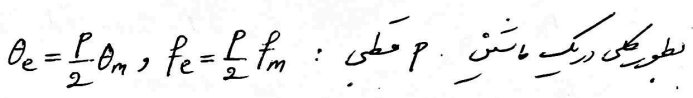 بطور کلی در یک ماشین P قطبی : θe = P/2 θm , fe = P/2 fm